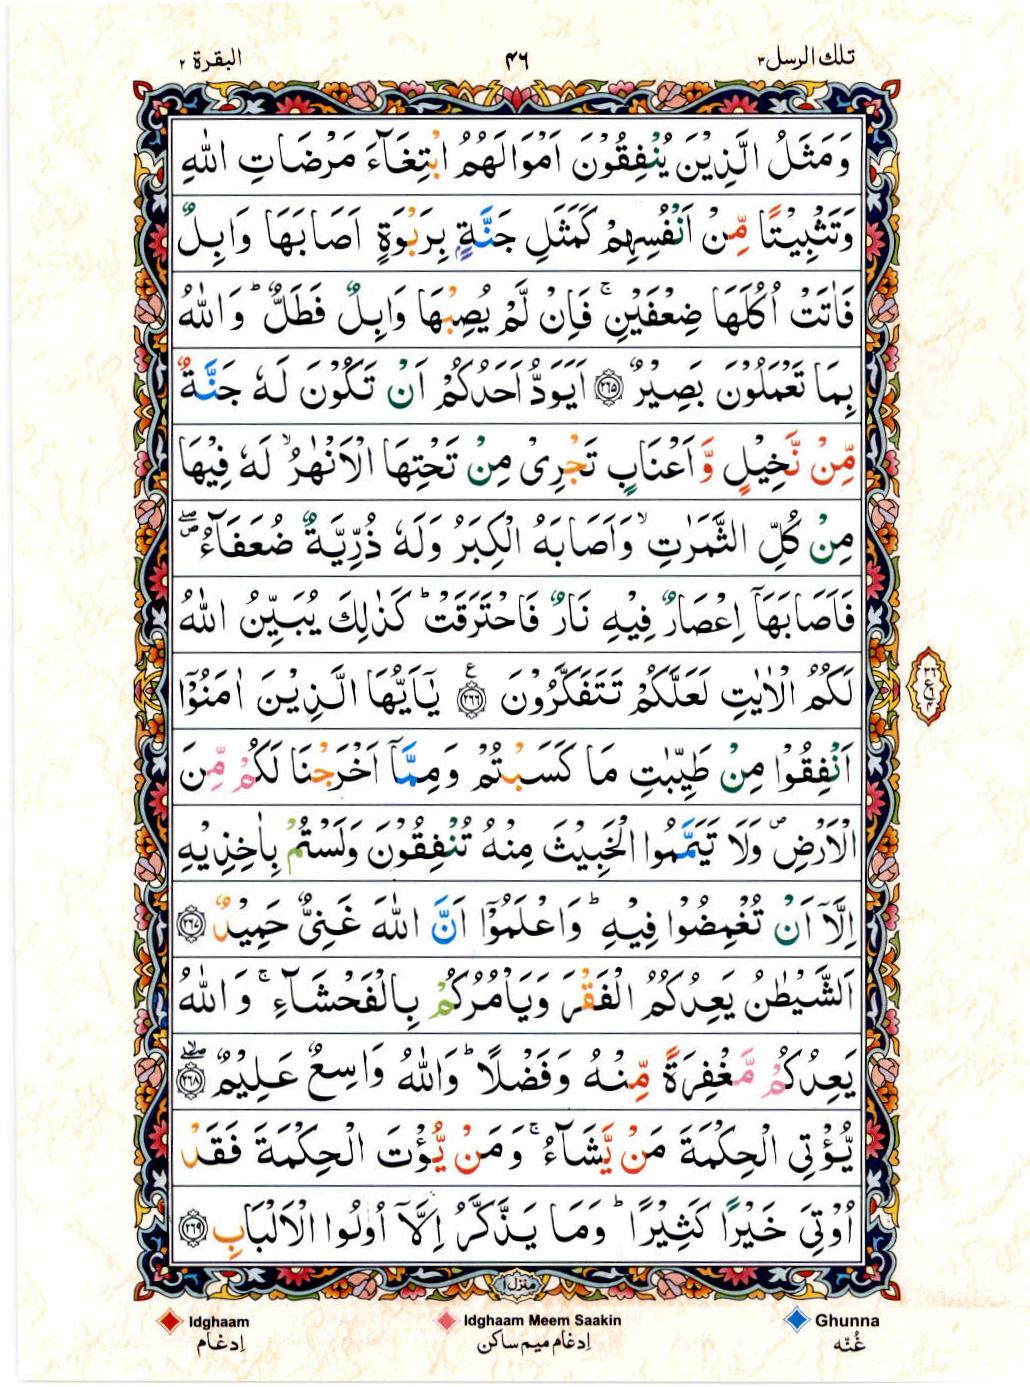 تلك الرسل ٣
٤٦
البقرة ٢
وَمَثَلُ الَّذِيْنَ يُنْفِقُوْنَ اَمْوَالَهُمُ ابْتِغَآءَ مَرْضَاتِ اللّٰهِ
وَتَثْبِيْتًا مِّنْ اَنْفُسِهِمْ كَمَثَلِ جَنَّةٍۭ بِرَبْوَةٍ اَصَابَهَا وَابِلٌ
فَاٰتَتْ اُكُلَهَا ضِعْفَيْنِ ۚ فَاِنْ لَّمْ يُصِبْهَا وَابِلٌ فَطَلٌّ ؕ وَاللّٰهُ
بِمَا تَعْمَلُوْنَ بَصِيْرٌ ﴿٢٦٥﴾ اَيَوَدُّ اَحَدُكُمْ اَنْ تَكُوْنَ لَهٗ جَنَّةٌ
مِّنْ نَّخِيْلٍ وَّاَعْنَابٍ تَجْرِىْ مِنْ تَحْتِهَا الْاَنْهٰرُ ۙ لَهٗ فِيْهَا
مِنْ كُلِّ الثَّمَرٰتِ ۙ وَاَصَابَهُ الْكِبَرُ وَلَهٗ ذُرِّيَّةٌ ضُعَفَآءُ ۖ
فَاَصَابَهَاۤ اِعْصَارٌ فِيْهِ نَارٌ فَاحْتَرَقَتْ ؕ كَذٰلِكَ يُبَيِّنُ اللّٰهُ
لَكُمُ الْاٰيٰتِ لَعَلَّكُمْ تَتَفَكَّرُوْنَ ﴿٢٦٦﴾ ع يٰۤاَيُّهَا الَّذِيْنَ اٰمَنُوْۤا
اَنْفِقُوْا مِنْ طَيِّبٰتِ مَا كَسَبْتُمْ وَمِمَّاۤ اَخْرَجْنَا لَكُمْ مِّنَ
الْاَرْضِ ۪ وَلَا تَيَمَّمُوا الْخَبِيْثَ مِنْهُ تُنْفِقُوْنَ وَلَسْتُمْ بِاٰخِذِيْهِ
اِلَّاۤ اَنْ تُغْمِضُوْا فِيْهِ ؕ وَاعْلَمُوْۤا اَنَّ اللّٰهَ غَنِىٌّ حَمِيْدٌ ﴿٢٦٧﴾
اَلشَّيْطٰنُ يَعِدُكُمُ الْفَقْرَ وَيَاْمُرُكُمْ بِالْفَحْشَآءِ ۚ وَاللّٰهُ
يَعِدُكُمْ مَّغْفِرَةً مِّنْهُ وَفَضْلًا ؕ وَاللّٰهُ وَاسِعٌ عَلِيْمٌ ﴿٢٦٨﴾ ۖۙ
يُّؤْتِى الْحِكْمَةَ مَنْ يَّشَآءُ ۚ وَمَنْ يُّؤْتَ الْحِكْمَةَ فَقَدْ
اُوْتِىَ خَيْرًا كَثِيْرًا ؕ وَمَا يَذَّكَّرُ اِلَّاۤ اُولُوا الْاَلْبَابِ ﴿٢٦٩﴾
منزل ١
Idghaam
Idghaam Meem Saakin
Ghunna
اِدغَام
اِدغَام میم ساکن
غُنّه